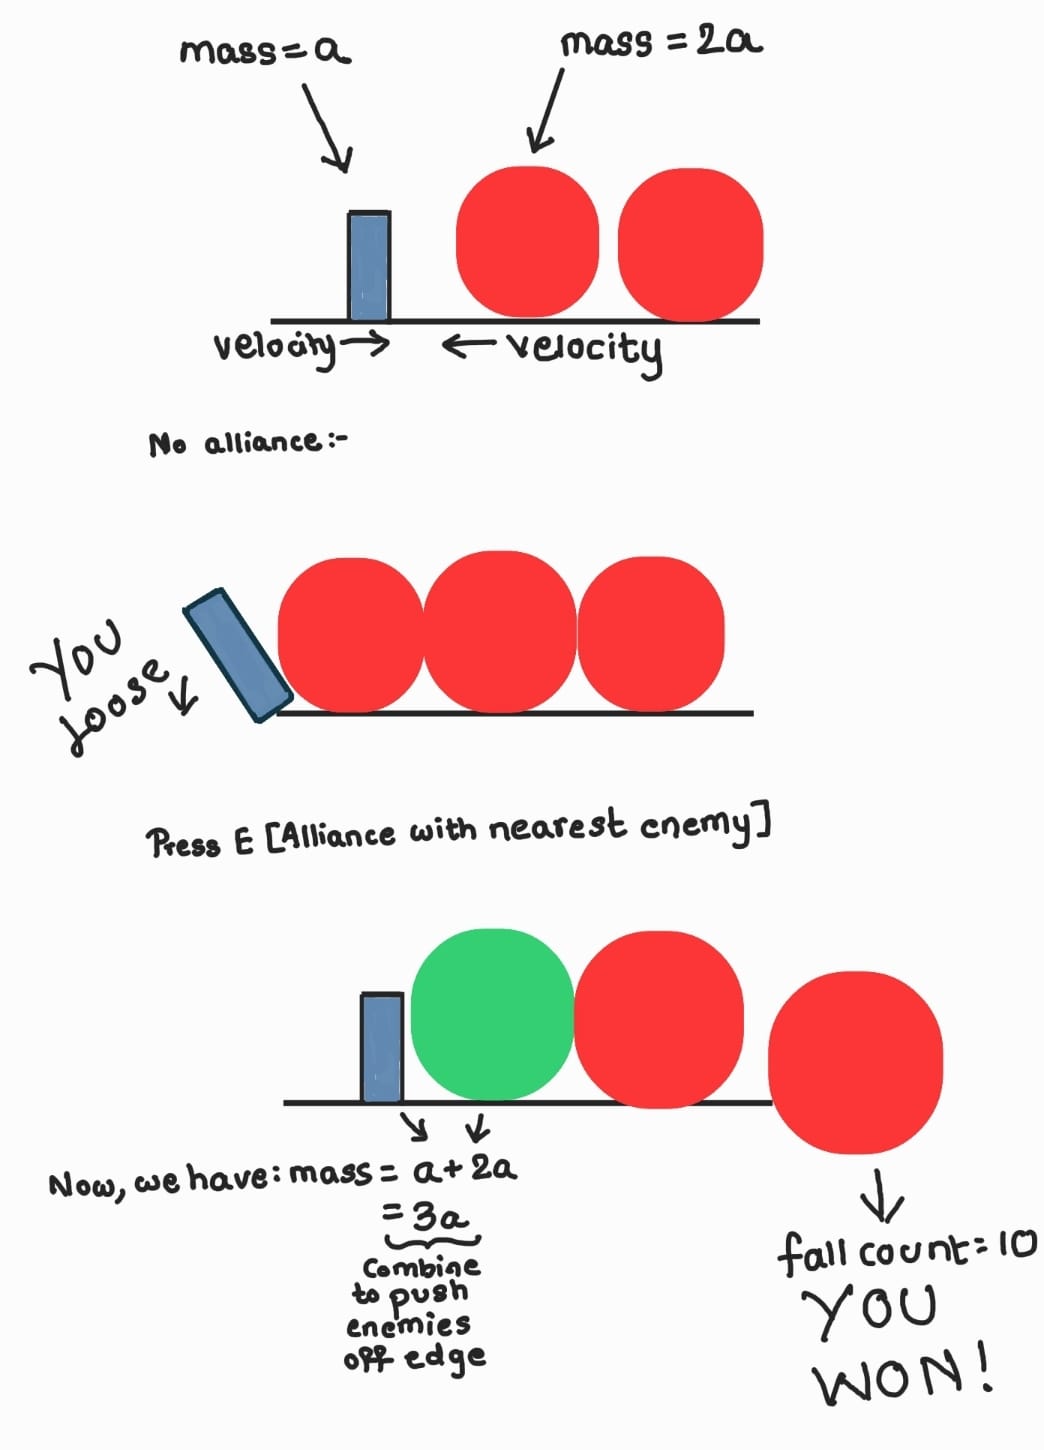 mass=a
mass = 2a
velocity
velocity
No alliance:-
YOU
Loose
Press E [Alliance with nearest enemy]
Now, we have: mass = a+2a
=3a
Combine
to push
enemies
off edge
fall count=10
YOU
WON!